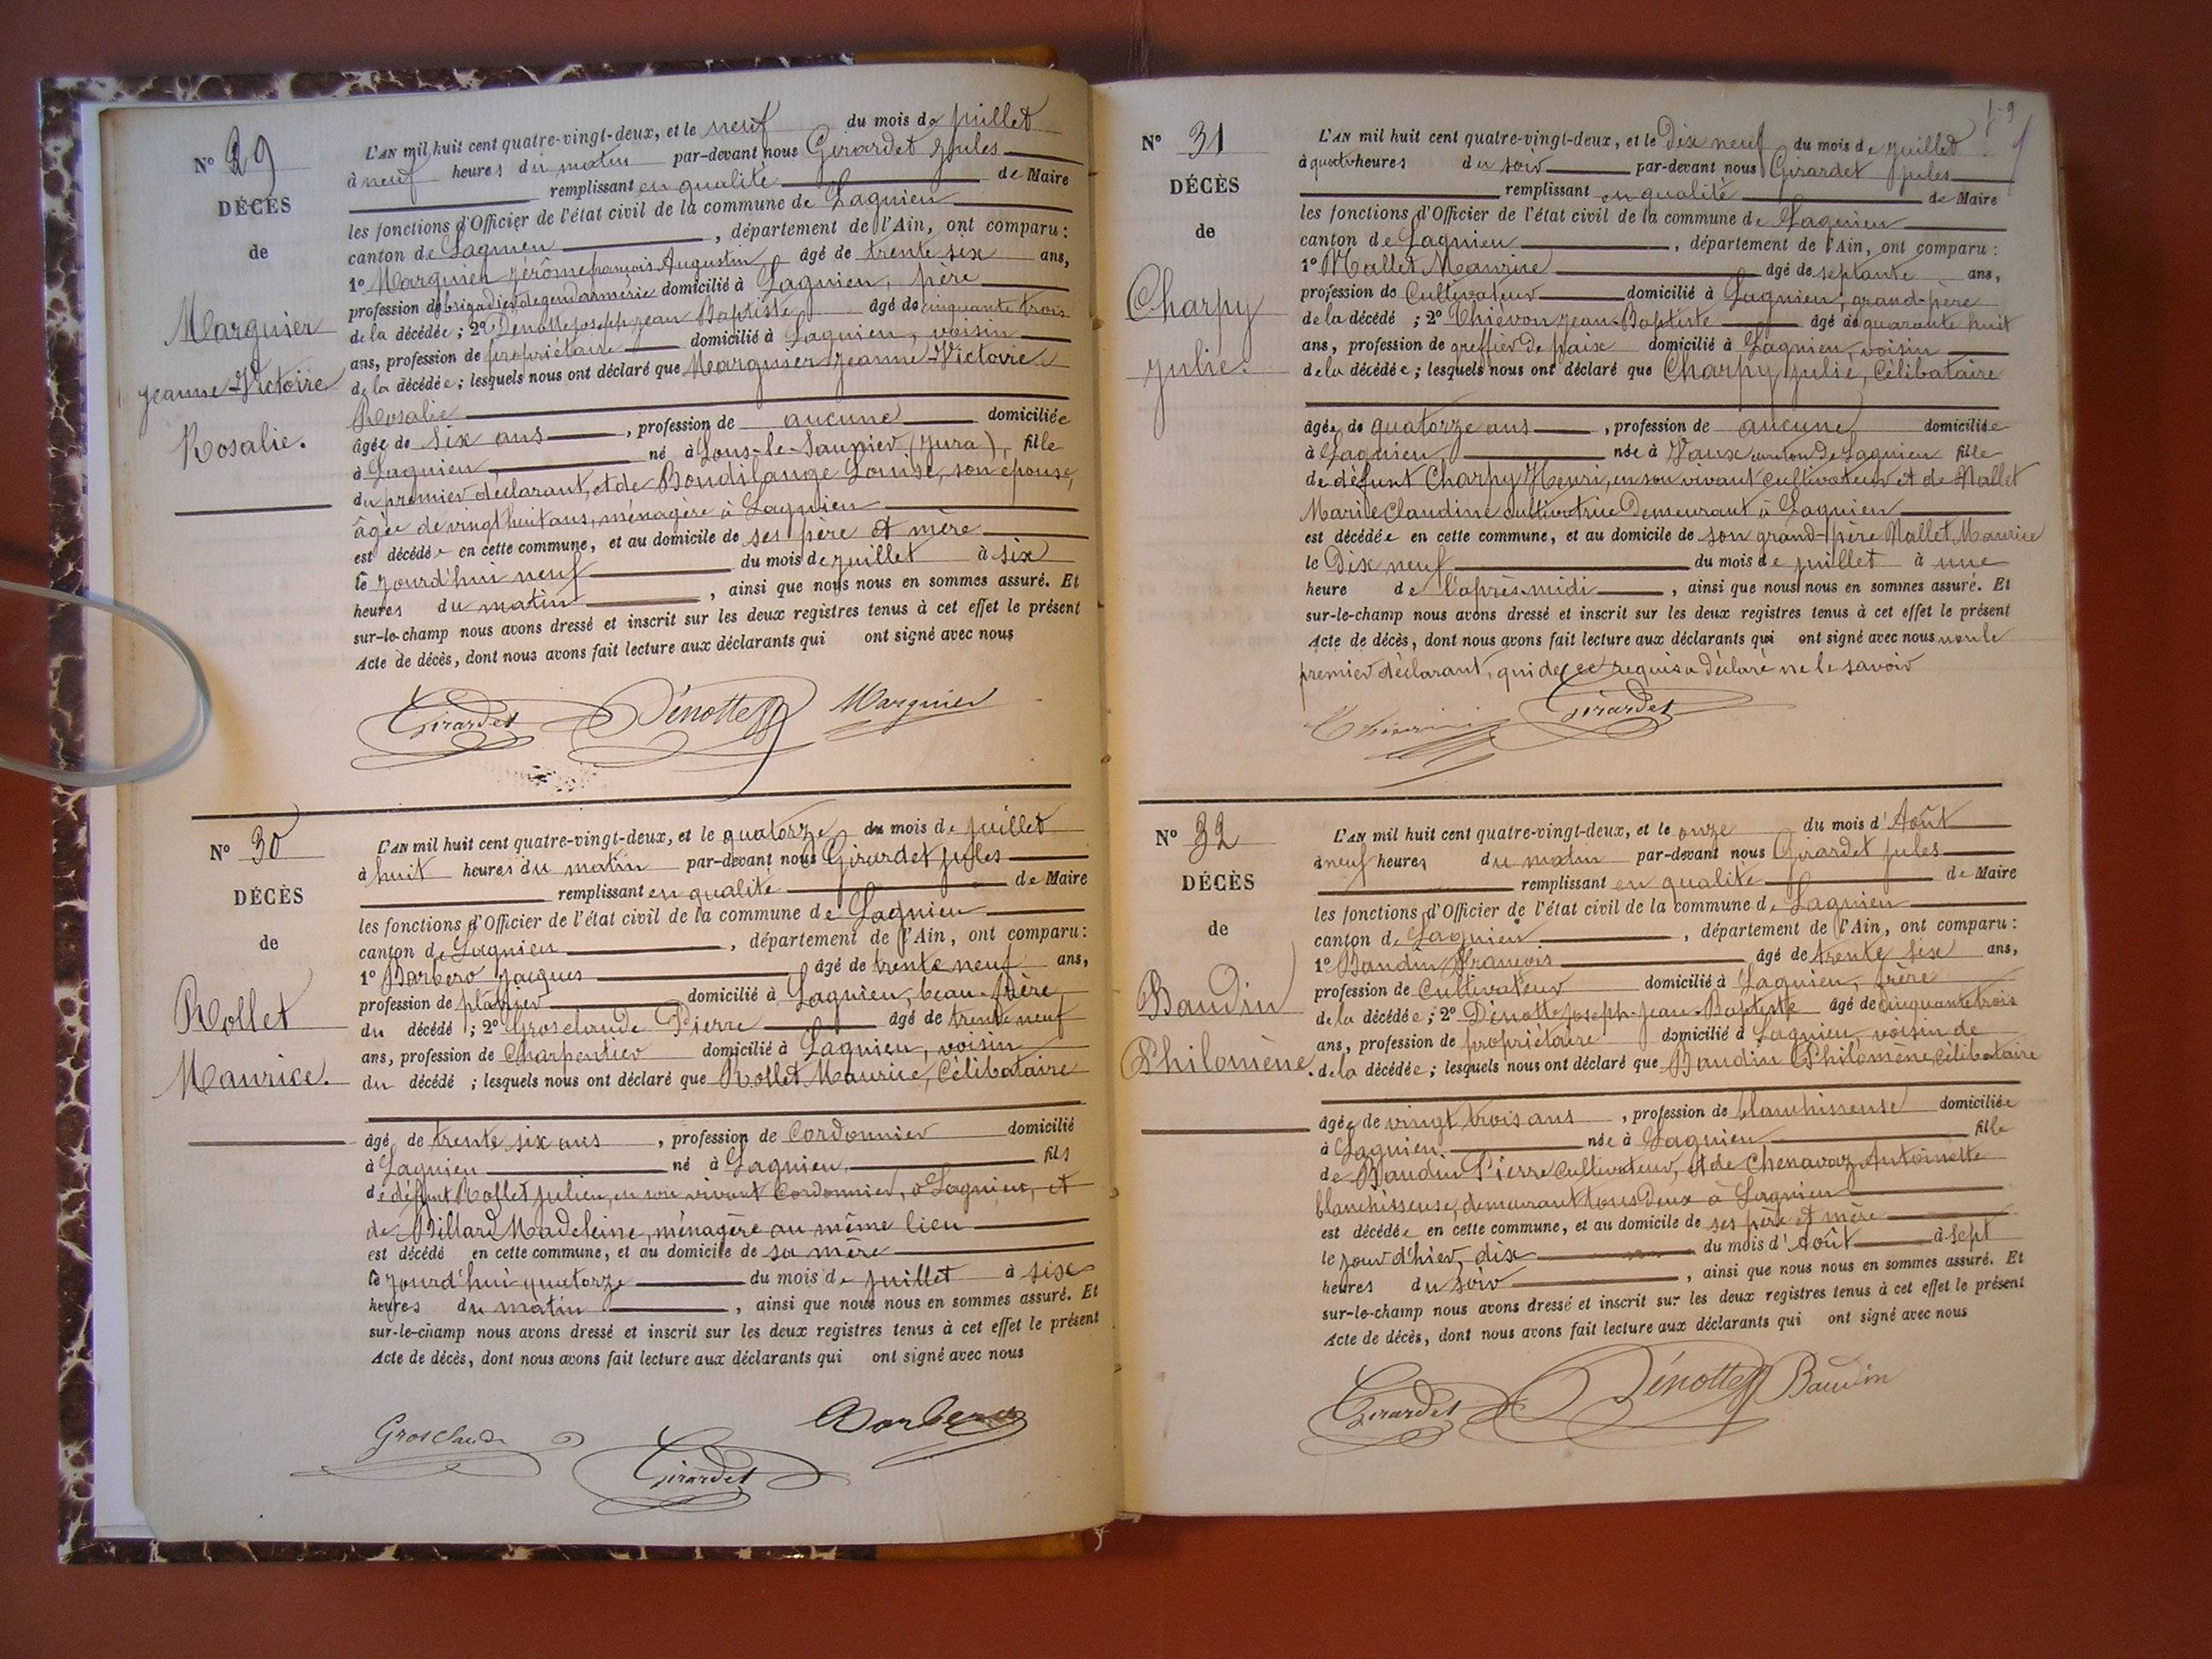 N° 29
DÉCÈS
de
Marguier
Jeanne-Victoire
Rosalie.
L'AN mil huit cent quatre-vingt-deux, et le neuf du mois de juillet
à neuf heures du matin par-devant nous Girardet Jules
remplissant en qualité de Maire
les fonctions d'Officier de l'état civil de la commune de Lagnieu
canton de Lagnieu, département de l'Ain, ont comparu:
1° Marguier Jérôme françois Augustin âgé de trente six ans,
profession de brigadier de gendarmerie domicilié à Lagnieu, père
de la décédée; 2° Dénotte joseph jean Baptiste âgé de cinquante trois
ans, profession de propriétaire domicilié à Lagnieu, voisin
de la décédée; lesquels nous ont déclaré que Marguier Jeanne-Victoire
Rosalie
âgée de six ans, profession de aucune domiciliée
à Lagnieu né à Lons-le-Saunier (Jura), fille
du premier déclarant, et de Boudilange Louise, son épouse,
âgée de vingt huit ans, ménagère à Lagnieu
est décédée en cette commune, et au domicile de ses père et mère
le jourd'hui neuf du mois de juillet à six
heures du matin, ainsi que nous nous en sommes assuré. Et
sur-le-champ nous avons dressé et inscrit sur les deux registres tenus à cet effet le présent
Acte de décès, dont nous avons fait lecture aux déclarants qui ont signé avec nous
Girardet Dénotte Marguier
N° 30
DÉCÈS
de
Rollet
Maurice.
L'AN mil huit cent quatre-vingt-deux, et le quatorze du mois de juillet
à huit heures du matin par-devant nous Girardet Jules
remplissant en qualité de Maire
les fonctions d'Officier de l'état civil de la commune de Lagnieu
canton de Lagnieu, département de l'Ain, ont comparu:
1° Barbero Jacques âgé de trente neuf ans,
profession de plâtrier domicilié à Lagnieu, beau-frère
du décédé; 2° Grosclaude Pierre âgé de trente neuf
ans, profession de Charpentier domicilié à Lagnieu, voisin
du décédé; lesquels nous ont déclaré que Rollet Maurice, Célibataire
âgé de trente six ans, profession de Cordonnier domicilié
à Lagnieu né à Lagnieu, fils
de défunt Rollet Julien, en son vivant Cordonnier, à Lagnieu, et
de Billard Madeleine, ménagère au même lieu
est décédé en cette commune, et au domicile de sa mère
le jourd'hui quatorze du mois de juillet à six
heures du matin, ainsi que nous nous en sommes assuré. Et
sur-le-champ nous avons dressé et inscrit sur les deux registres tenus à cet effet le présent
Acte de décès, dont nous avons fait lecture aux déclarants qui ont signé avec nous
Grosclaude Girardet Barbero
N° 31
DÉCÈS
de
Charpy
Julie.
L'AN mil huit cent quatre-vingt-deux, et le Dix neuf du mois de juillet
à quatre heures du soir par-devant nous Girardet Jules
remplissant en qualité de Maire
les fonctions d'Officier de l'état civil de la commune de Lagnieu
canton de Lagnieu, département de l'Ain, ont comparu:
1° Mallet Maurice âgé de septante ans,
profession de Cultivateur domicilié à Lagnieu, grand-père
de la décédé; 2° Thiévon Jean-Baptiste âgé de quarante huit
ans, profession de greffier de paix domicilié à Lagnieu, voisin
de la décédée; lesquels nous ont déclaré que Charpy Julie, Célibataire
âgée de quatorze ans, profession de aucune domiciliée
à Lagnieu née à Vaux canton de Lagnieu fille
de défunt Charpy Henri, en son vivant cultivateur et de Mallet
Marie Claudine cultivatrice Demeurant à Lagnieu
est décédée en cette commune, et au domicile de son grand-père Mallet Maurice
le Dix neuf du mois de juillet à une
heure de l'après-midi, ainsi que nous nous en sommes assuré. Et
sur-le-champ nous avons dressé et inscrit sur les deux registres tenus à cet effet le présent
Acte de décès, dont nous avons fait lecture aux déclarants qui ont signé avec nous non le
premier déclarant, qui de ce requis a déclaré ne le savoir
Girardet
N° 32
DÉCÈS
de
Baudin
Philomène.
L'AN mil huit cent quatre-vingt-deux, et le onze du mois d'Août
à neuf heures du matin par-devant nous Girardet Jules
remplissant en qualité de Maire
les fonctions d'Officier de l'état civil de la commune de Lagnieu
canton de Lagnieu, département de l'Ain, ont comparu:
1° Baudin François âgé de trente six ans,
profession de Cultivateur domicilié à Lagnieu, frère
de la décédée; 2° Dénotte Joseph-Jean-Baptiste âgé de cinquante trois
ans, profession de propriétaire domicilié à Lagnieu, voisin de
de la décédée; lesquels nous ont déclaré que Baudin Philomène, célibataire
âgée de vingt trois ans, profession de blanchisseuse domiciliée
à Lagnieu, née à Lagnieu fille
de Baudin Pierre Cultivateur, et de Chenavaz Antoinette
blanchisseuse, demeurant tous Deux à Lagnieu
est décédée en cette commune, et au domicile de ses père et mère
le jour d'hier, dix du mois d'Août à sept
heures du soir, ainsi que nous nous en sommes assuré. Et
sur-le-champ nous avons dressé et inscrit sur les deux registres tenus à cet effet le présent
Acte de décès, dont nous avons fait lecture aux déclarants qui ont signé avec nous
Girardet Dénotte Baudin